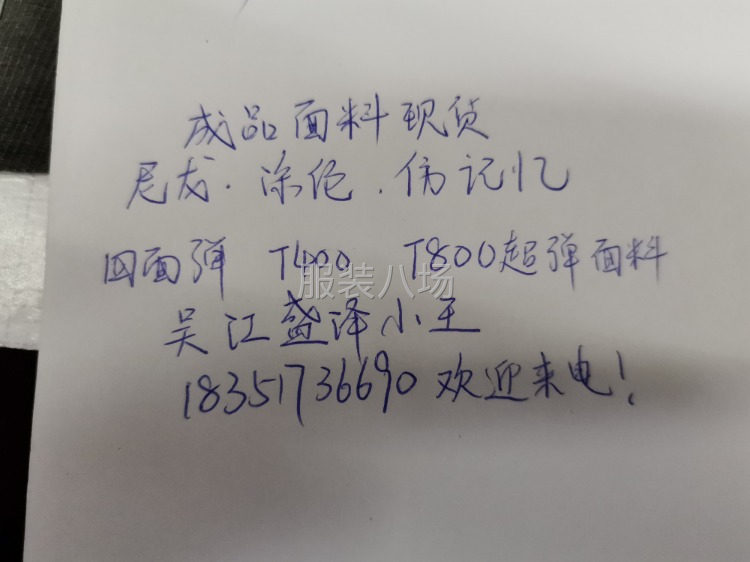 成品面料现货
尼龙.涤纶.仿记忆
四面弹 T400 T800超弹面料
服装八场
吴江盛泽小王
18351736690欢迎来电!